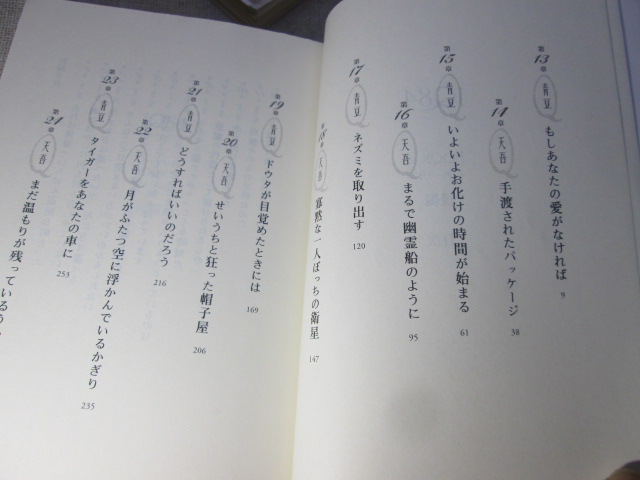 第13章 青豆 もしあなたの愛がなければ 9
第14章 天吾 手渡されたパッケージ 38
第15章 青豆 いよいよお化けの時間が始まる 61
第16章 天吾 まるで幽霊船のように 95
第17章 青豆 ネズミを取り出す 120
第18章 天吾 寡黙な一人ぼっちの衛星 147
第19章 青豆 ドウタが目覚めたときには 169
第20章 天吾 せいうちと狂った帽子屋 206
第21章 青豆 どうすればいいのだろう 216
第22章 天吾 月がふたつ空に浮かんでいるかぎり 235
第23章 青豆 タイガーをあなたの車に 253
第24章 天吾 まだ温もりが残っているう